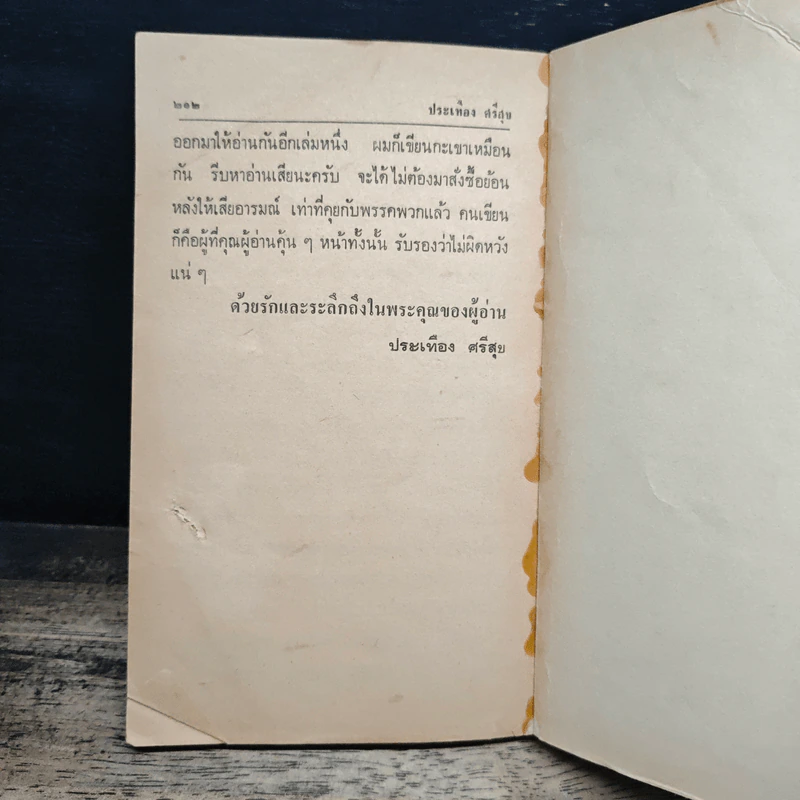 ๒๑๒ ประเทือง ศรีสุข
ออกมาให้อ่านกันอีกเล่มหนึ่ง ผมก็เขียนกะเขาเหมือน
กัน รีบหาอ่านเสียนะครับ จะได้ไม่ต้องมาสั่งซื้อย้อน
หลังให้เสียอารมณ์ เท่าที่คุยกับพรรคพวกแล้ว คนเขียน
ก็คือผู้ที่คุณผู้อ่านคุ้น ๆ หน้าทั้งนั้น รับรองว่าไม่ผิดหวัง
แน่ ๆ
ด้วยรักและระลึกถึงในพระคุณของผู้อ่าน
ประเทือง ศรีสุข